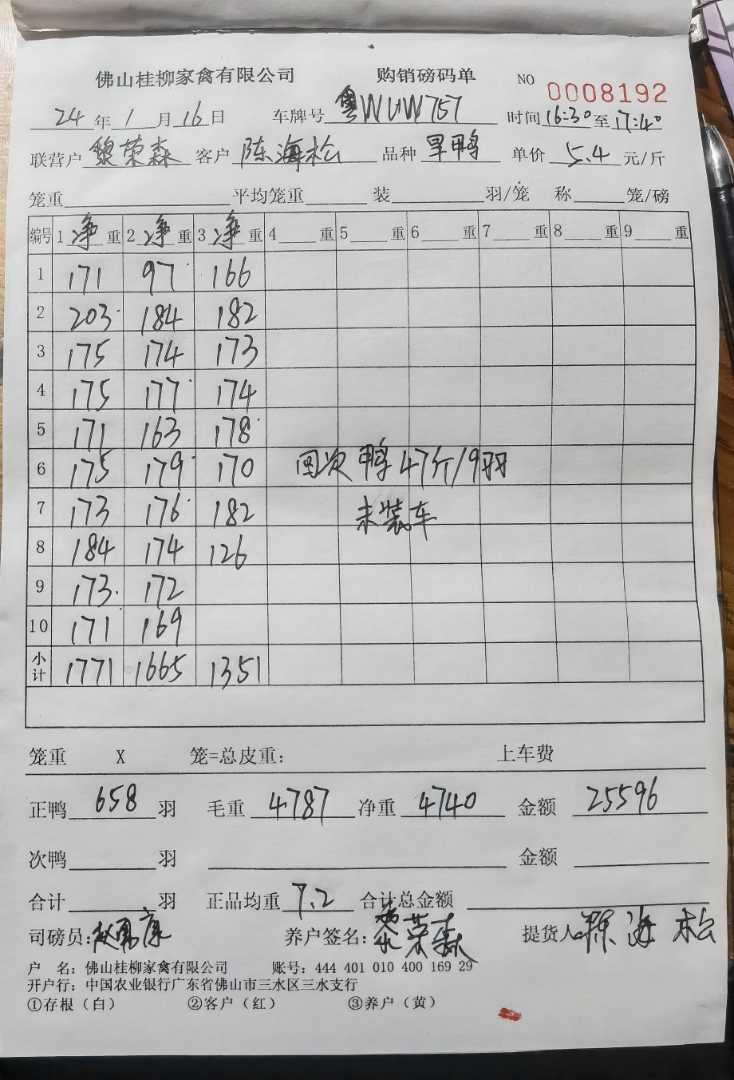 佛山桂柳家禽有限公司 购销磅码单 NO 0008192
24年1月16日 车牌号粤WUW757 时间16:30至17:40
联营户黎荣森 客户陈海松 品种旱鸭 单价5.4元/斤
笼重 平均笼重 装 羽/笼 称 笼/磅
编号 1净重 2净重 3净重 4 重 5 重 6 重 7 重 8 重 9 重
1 171 97 166
2 203 184 182
3 175 174 173
4 175 177 174
5 171 163 178
6 175 179 170 回次鸭47斤/9羽
7 173 176 182 未装车
8 184 174 126
9 173 172
10 171 169
小计 1771 1665 1351
笼重 X 笼=总皮重: 上车费
正鸭658羽 毛重4787 净重4740 金额25596
次鸭 羽 金额
合计 羽 正品均重7.2 合计总金额
司磅员: 养户签名:黎荣森 提货人陈海松
户 名: 佛山桂柳家禽有限公司 账号: 444 401 010 400 169 29
开户行: 中国农业银行广东省佛山市三水区三水支行
①存根(白) ②客户(红) ③养户(黄)